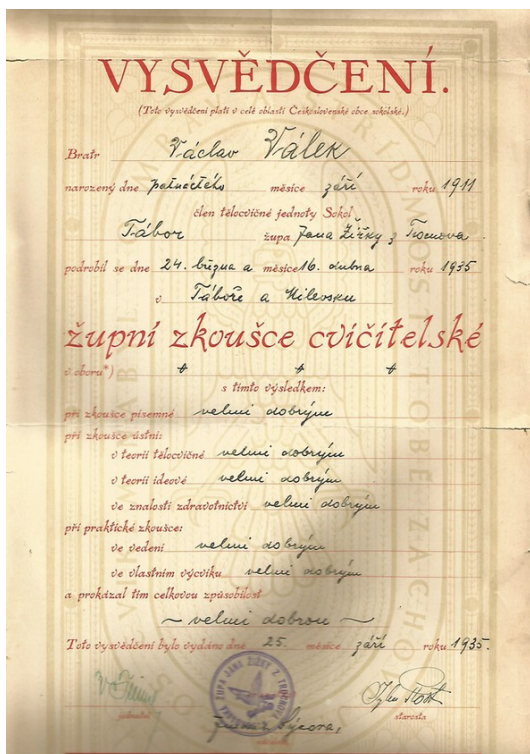 VYSVĚDČENÍ.
(Toto vysvědčení platí v celé oblasti Československé obce sokolské.)
Bratr Václav Válek
narozený dne patnáctého měsíce září roku 1911
člen tělocvičné jednoty Sokol
Tábor župa Jana Žižky z Trocnova.
podrobil se dne 24. března a měsíce 16. dubna roku 1935
v Táboře a Milevsku
župní zkoušce cvičitelské
v oboru*)
s tímto výsledkem:
při zkoušce písemné velmi dobrým
při zkoušce ústní:
v teorii tělocvičné velmi dobrým
v teorii ideové velmi dobrým
ve znalosti zdravotnictví velmi dobrým
při praktické zkoušce:
ve vedení velmi dobrým
ve vlastním výcviku velmi dobrým
a prokázal tím celkovou způsobilost
~ velmi dobrou ~
Toto vysvědčení bylo vydáno dne 25. měsíce září roku 1935.
ŽUPA JANA ŽIŽKY Z TROCNOVA
Sýkora,
starosta